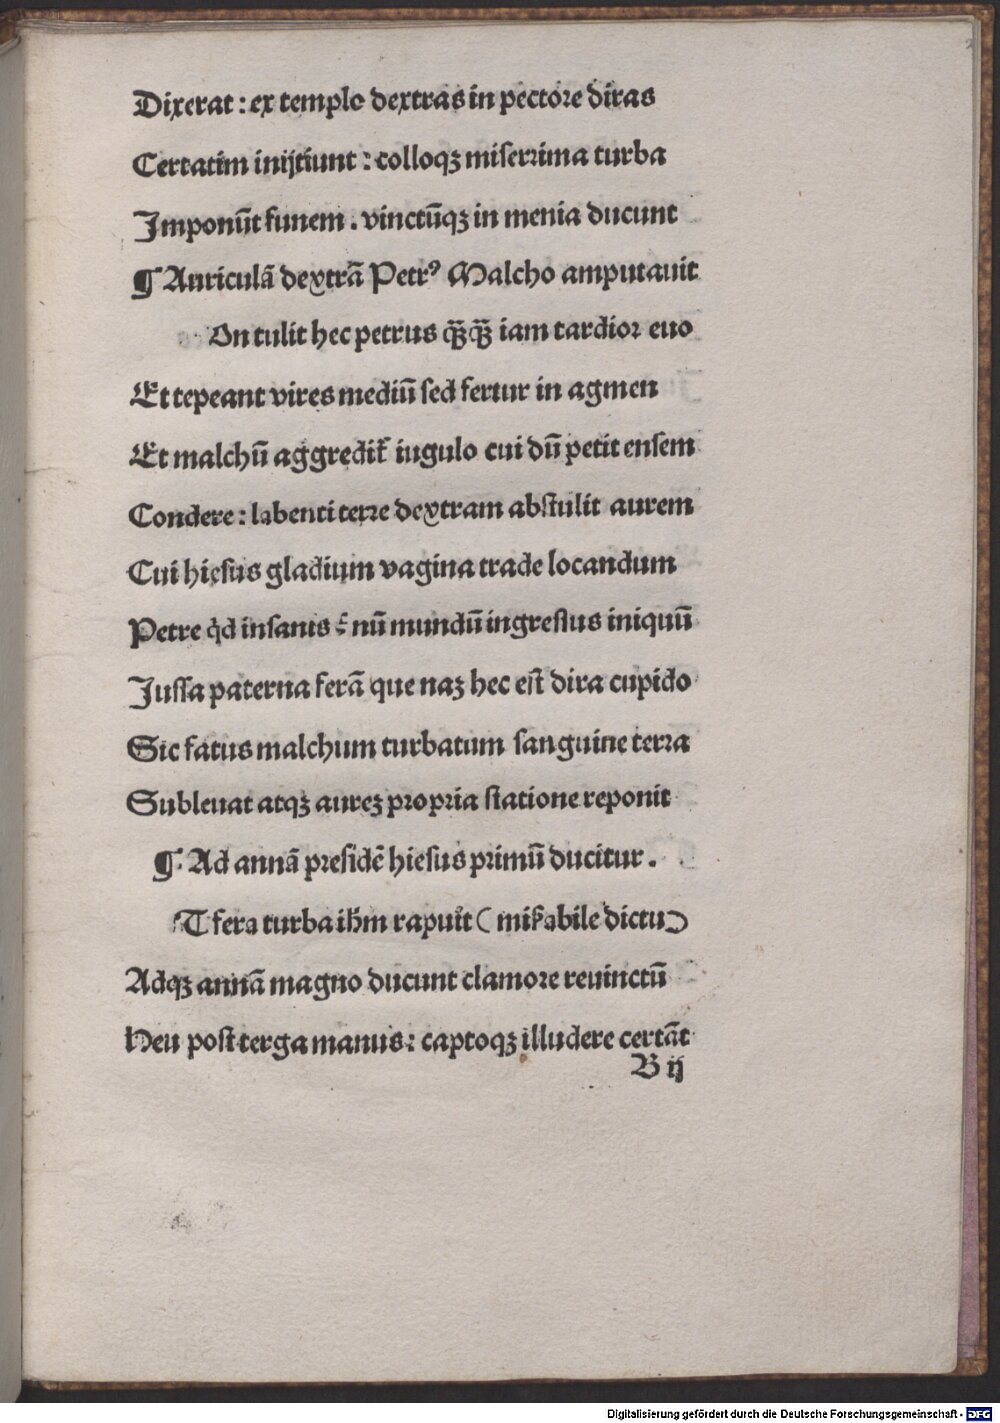 Dixerat : ex templo dextras in pectore diras
Certatim inijtiunt : colloqꝫ miserrima turba
Imponūt funem . vinctūqꝫ in menia ducunt
¶ Auriculā dextrā Petrꝰ Malcho amputauit
On tulit hec petrus qꝗ̃ꝗ̃ iam tardior euo
Et tepeant vires mediū sed fertur in agmen
Et malchū aggredit̄ iugulo cui dū petit ensem
Condere : labenti terre dextram abstulit aurem
Cui hiesus gladium vagina trade locandum
Petre qd̓ insanis : nū mundū ingressus iniquū
Iussa paterna ferā que naꝫ hec est dira cupido
Sic fatus malchum turbatum sanguine terra
Subleuat atqꝫ aureꝫ propria statione reponit
¶ Ad annā presidē hiesus primū ducitur .
T fera turba ihm̄ rapuit ( mirabile dictu )
Adqꝫ annā magno ducunt clamore reuinctū
Heu post terga manus : captoqꝫ illudere certāt
B ij
Digitalisierung gefördert durch die Deutsche Forschungsgemeinschaft - DFG